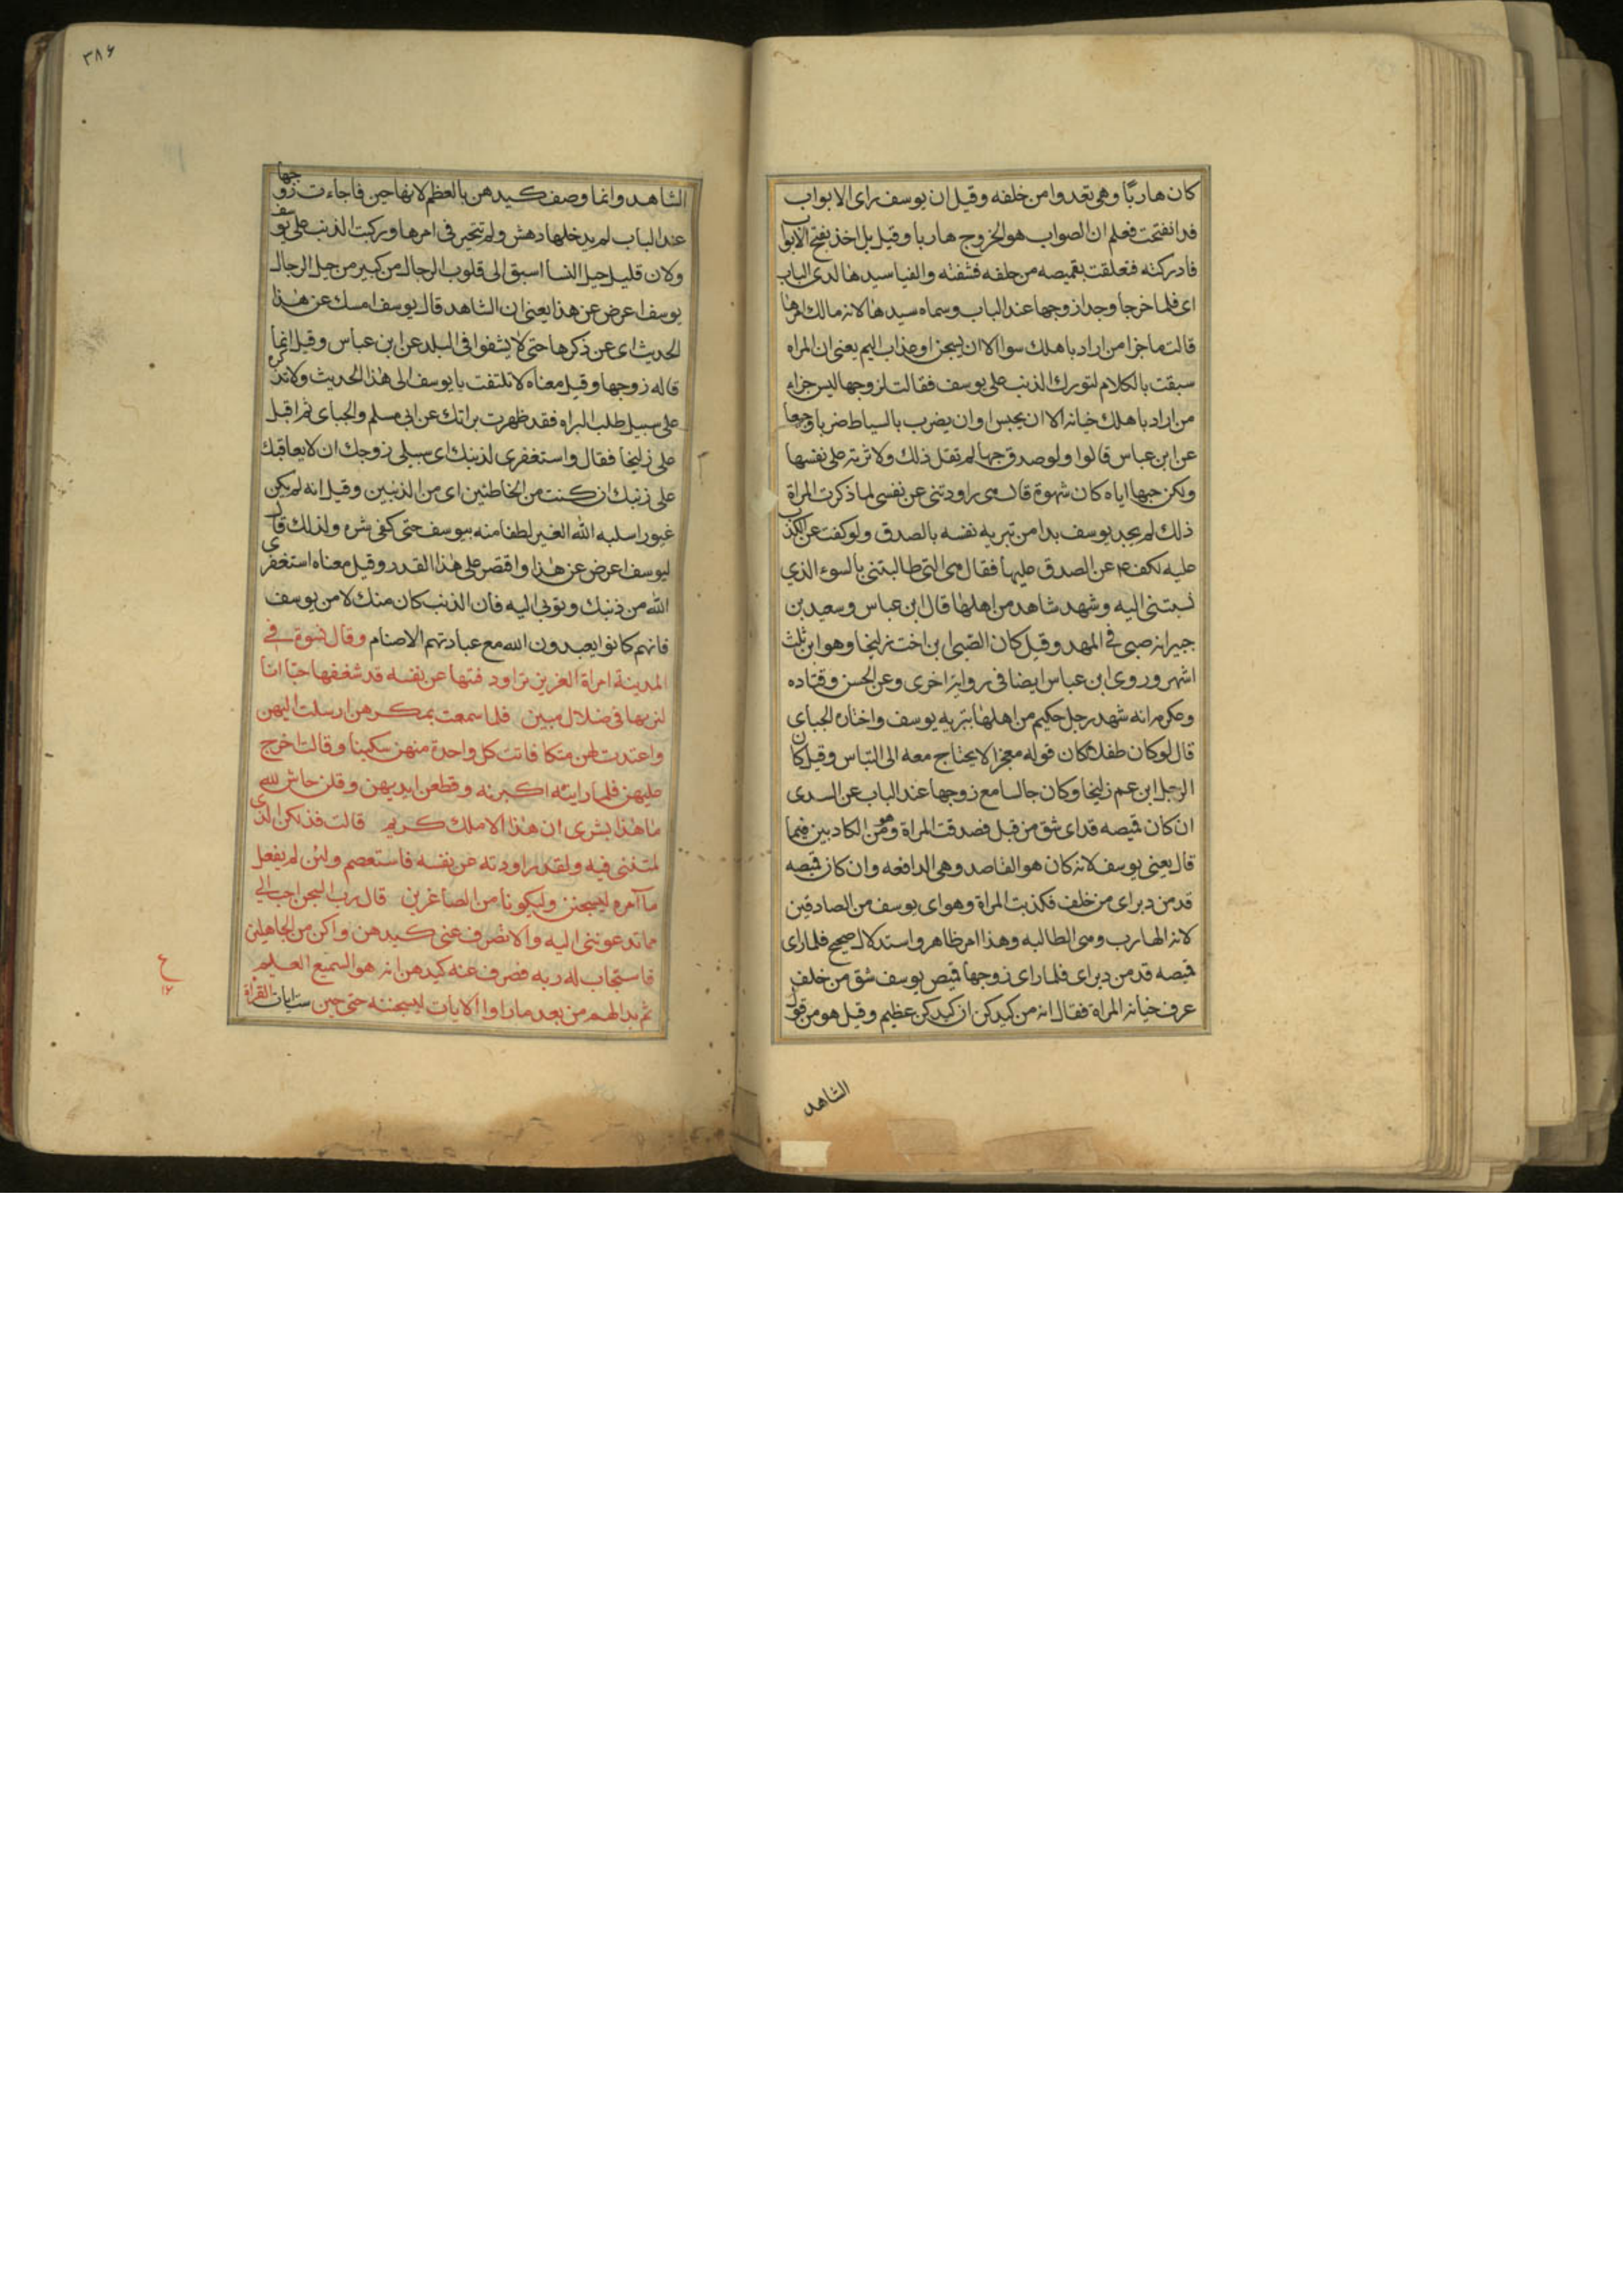 كان هاربًا وهي تعدوا من خلفه وقيل ان يوسف راى الابواب
قد انفتحت فعلم ان الصواب هو الخروج هاربا وقيل بل اخذ بفتح الابواب
فادركته فتعلقت بقميصه من خلفه فشقته والفيا سيدها لدى الباب
اى فلما خرجا وجدا زوجها عند الباب وسماه سيدها لانه مالك امرها
قالت ما جزا من اراد باهلك سوا الا ان يسجن او عذاب اليم يعنى ان المراه
سبقت بالكلام لتورك الذنب على يوسف فقالت لزوجها ليس جزاء
من اراد باهلك خيانه الا ان يحبس او ان يضرب بالسياط ضربا وجعا
عن ابن عباس قالوا ولو صدق حبها لم تقل ذلك ولاثرته على نفسها
ولكن حبها اياه كان شهوة قال هى راودتنى عن نفسى لما ذكرت المراة
ذلك لم يجد يوسف بدا من تبريه نفسه بالصدق ولو كفت عن الكذب
عليه لكف عن الصدق عليها فقال هى التى طالبتنى بالسوء الذي
نسبتنى اليه وشهد شاهد من اهلها قال ابن عباس وسعيد بن
جبير انه صبى فى المهد وقيل كان الصبى ابن اخت زليخا وهو ابن ثلث
اشهر وروى ابن عباس ايضا فى رواية اخرى وعن الحسن وقتاده
وعكرمه انه شهد رجل حكيم من اهلها بتبريه يوسف واختاره الجباى
قال لو كان طفلا لكان قوله معجزا لا يحتاج معه الى التباس وقيل كان
الرجل ابن عم زليخا وكان جالسا مع زوجها عند الباب عن السدى
ان كان قميصه قد اى شق من قبل فصدقت المراة وهو من الكاذبين فيما
قال يعنى يوسف لانه كان هو القاصد وهى الدافعه وان كان قميصه
قد من دبر اى من خلف فكذبت المراة وهو اى يوسف من الصادقين
لانه الهارب وهى الطالبه وهذا امر ظاهر واستدلال صحيح فلما راى
قميصه قد من دبر اى فلما راى زوجها قميص يوسف شق من خلف
عرف خيانه المراة فقال انه من كيدكن ان كيدكن عظيم وقيل هو من قول
الشاهد
٣٨٦
الشاهد وانما وصف كيدهن بالعظم لانها حين فاجاءت زوجها
عند الباب لم يدخلها دهش ولم تتحير فى امرها وركبت الذنب على يوسف
ولان قليل حيل النسا اسبق الى قلوب الرجال من كبير من حيل الرجال
يوسف اعرض عن هذا يعنى ان الشاهد قال يوسف امسك عن هذا
الحديث اى عن ذكرها حتى لا يشفوا فى البلد عن ابن عباس وقيل انما
قاله زوجها وقيل معناه لا تلتفت يا يوسف الى هذا الحديث ولا تذكره
على سبيل طلب البراه فقد ظهرت براتك عن ابى مسلم والجباى ثم اقبل
على زليخا فقال واستغفرى لذنبك اى سلى زوجك ان لا يعاقبك
على ذنبك ان كنت من الخاطئين اى من الذنبين وقيل انه لم يكن
غيورا سلبه الله الغير لطفا منه بيوسف حتى كفى شره ولذلك قال
ليوسف اعرض عن هذا واقتصر على هذا القدر وقيل معناه استغفرى
الله من ذنبك وتوبى اليه فان الذنب كان منك لا من يوسف
فانهم كانوا يعبدون الله مع عبادتهم الاصنام وقال نسوة في
المدينة امراة العزيز تراود فتها عن نفسه قد شغفها حبّا انّا
لنريها في ضلال مبين فلما سمعت بمكرهن ارسلت اليهن
واعتدت لهن متكا فاتت كل واحدة منهن سكينا وقالت اخرج
عليهن فلما راينه اكبرنه وقطعن ايديهن وقلن حاش لله
ما هذا بشرى ان هذا الا ملك كريم قالت فذلكن الذى
لمتننى فيه ولقد راودته عن نفسه فاستعصم ولئن لم يفعل
ما آمره ليسجنن وليكونا من الصاغرين قال رب السجن احب الي
مما تدعوننى اليه والا تصرف عنى كيدهن واكن من الجاهلين
فاستجاب له ربه فصرف عنه كيدهن انه هو السميع العليم
ثم بدا لهم من بعد ما راوا الايات ليسجننه حتى حين ست ايات القراة
ع